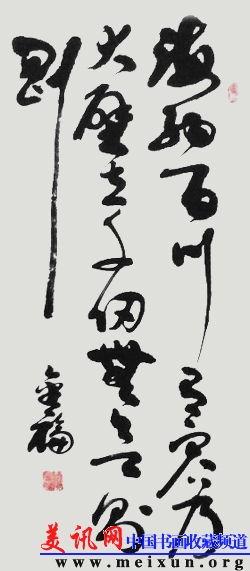 海納百川有容乃
大壁立千仞無欲則
剛
金福
美讯网 中国书画收藏频道
www.meixun.org